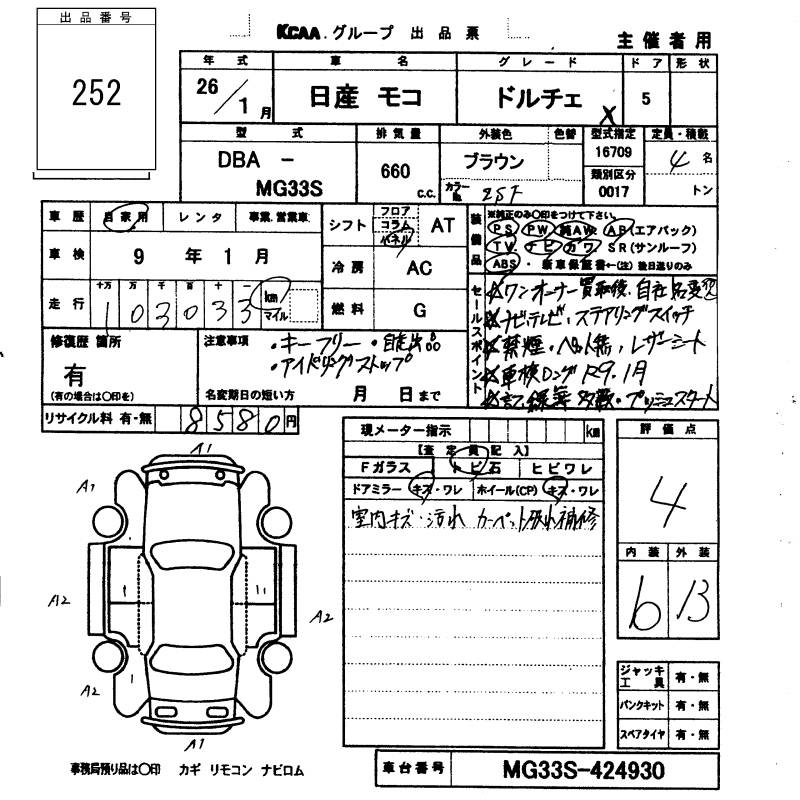 出品番号
252
KCAA グループ 出品票
主催者用
年式 車名 グレード ドア 形状
26/1月 日産 モコ ドルチェ X 5
型式 排気量 外装色 色替 型式指定 定員・積載
DBA - MG33S 660 c.c. ブラウン 16709 4名
カラーNo. 類別区分 0017 トン
車歴 自家用 レンタ 事業.営業車
シフト フロア コラム パネル AT
装備品 ※純正のみ〇印をつけて下さい。
PS PW 純AW AB(エアバック)
TV ナビ カワ SR(サンルーフ)
ABS・ 新車保証書←(注)後日送りのみ
車検 9年1月
冷房 AC
走行 十万 万 千 百 十 一
103033 km マイル
燃料 G
セールスポイント
ワンオーナー買取後.自社名変
ナビテレビ、ステアリングスイッチ
禁煙・ペット無、レザーシート
車検ロング R9.1月
プッシュスタート
修復歴 箇所
有
(有の場合は〇印を)
注意事項
・キーフリー・
・アイドリングストップ
名変期日の短い方 月 日まで
リサイクル料 有・無 8580円
現メーター指示 km
【査定員記入】
Fガラス トビ石 ヒビワレ
ドアミラー キズ・ワレ ホイール(CP) キズ・ワレ
室内キズ・汚れ カーペット切れ補修
評価点
4
内装 外装
b B
ジャッキ工具 有・無
パンクキット 有・無
スペアタイヤ 有・無
A1
A1
A2
A2
A2
A1
事務局預り品は〇印 カギ リモコン ナビロム
車台番号 MG33S-424930